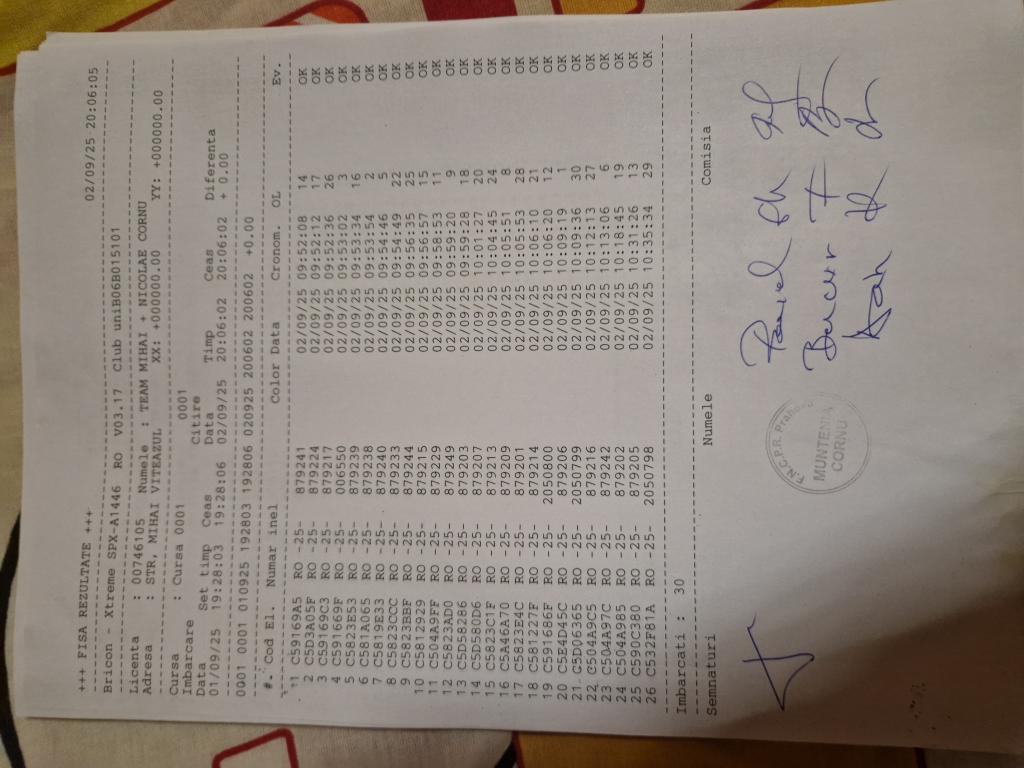 +++ FISA REZULTATE +++ 02/09/25 20:06:05
Bricon - Xtreme SPX-A1446 RO V03.17 Club uniB06B015101
Licenta : 00746105 Numele : TEAM MIHAI + NICOLAE CORNU
Adresa : STR, MIHAI VITEAZUL XX: +000000.00 YY: +000000.00
Cursa : Cursa 0001 0001
Imbarcare Citire
Data Set timp Ceas Data Timp Ceas Diferenta
01/09/25 19:28:03 19:28:06 02/09/25 20:06:02 20:06:02 + 0.00
0001 0001 010925 192803 192806 020925 200602 200602 +0.00
#. Cod El. Numar inel Color Data Cronom. OL Ev.
1 C59169A5 RO -25- 879241 02/09/25 09:52:08 14 OK
2 C5D3A05F RO -25- 879224 02/09/25 09:52:12 17 OK
3 C59169C3 RO -25- 879217 02/09/25 09:52:36 26 OK
4 C591669F RO -25- 006550 02/09/25 09:53:02 3 OK
5 C5823E53 RO -25- 879239 02/09/25 09:53:34 16 OK
6 C581A065 RO -25- 879238 02/09/25 09:53:54 2 OK
7 C5819E33 RO -25- 879240 02/09/25 09:54:46 5 OK
8 C5823CCC RO -25- 879233 02/09/25 09:54:49 22 OK
9 C5823BBF RO -25- 879244 02/09/25 09:56:35 25 OK
10 C5812929 RO -25- 879215 02/09/25 09:56:57 15 OK
11 C504A9FF RO -25- 879229 02/09/25 09:58:53 11 OK
12 C5823AD0 RO -25- 879249 02/09/25 09:59:20 9 OK
13 C5D58286 RO -25- 879203 02/09/25 09:59:28 18 OK
14 C5D580D6 RO -25- 879207 02/09/25 10:01:27 20 OK
15 C5823C1F RO -25- 879213 02/09/25 10:04:45 24 OK
16 C5A46A70 RO -25- 879209 02/09/25 10:05:51 8 OK
17 C5823E4C RO -25- 879201 02/09/25 10:05:53 28 OK
18 C581227F RO -25- 879214 02/09/25 10:06:10 21 OK
19 C591686F RO -25- 2050800 02/09/25 10:06:20 12 OK
20 C5E4D45C RO -25- 879206 02/09/25 10:09:19 1 OK
21 C5D06365 RO -25- 2050799 02/09/25 10:09:36 30 OK
22 C504A9C5 RO -25- 879216 02/09/25 10:12:13 27 OK
23 C504A97C RO -25- 879242 02/09/25 10:13:06 6 OK
24 C504A985 RO -25- 879202 02/09/25 10:18:45 19 OK
25 C590C380 RO -25- 879205 02/09/25 10:31:26 13 OK
26 C532F81A RO -25- 2050798 02/09/25 10:35:34 29 OK
Imbarcati : 30
Semnaturi Numele Comisia
F.N.C.P.R. Prahova
MUNTENIA
CORNU